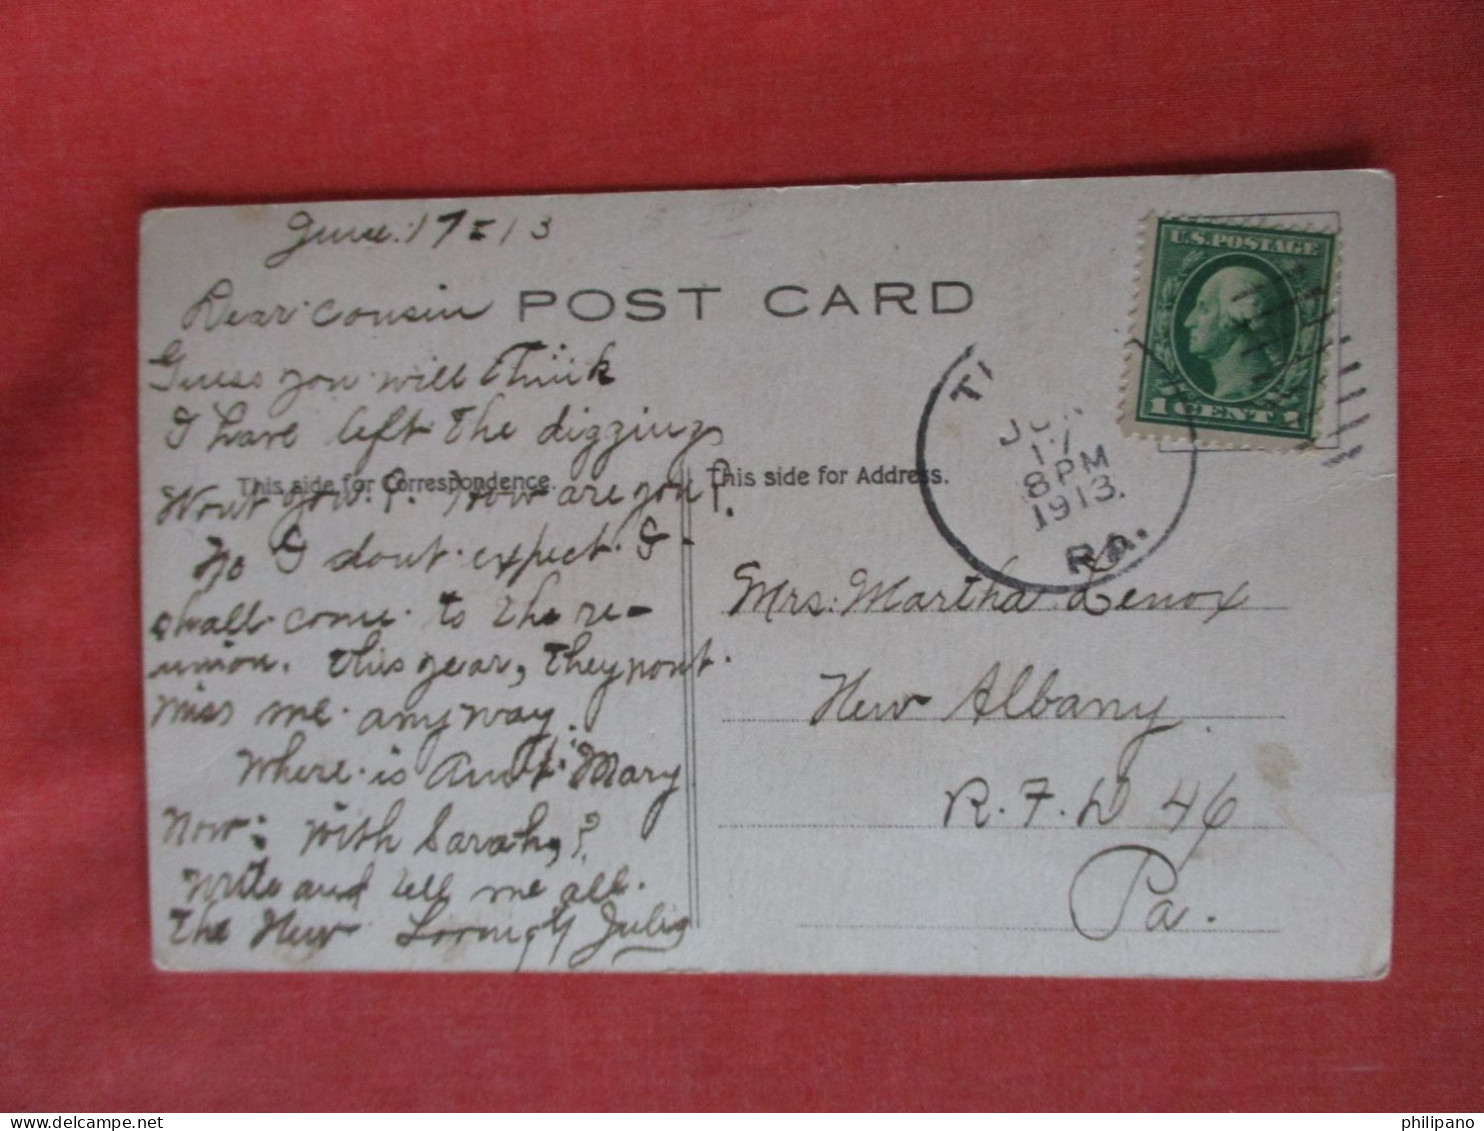 June. 17 = 13
Dear cousin
POST CARD
Guess you will think
I have left the diggings
This side for Correspondence.
Wont you.?. How are you?.
No I dont expect I
shall come to the re-
union. this year, they wont
miss me any way.
Where is Aunt Mary
Now: With Sarah,?
Write and tell me all.
the New
Julia
U.S. POSTAGE
1 CENT 1
TI
JUN
17
8 PM
1913.
PA.
This side for Address.
Mrs. Martha Lenox
New Albany
R.F.D 46
Pa.
philipano